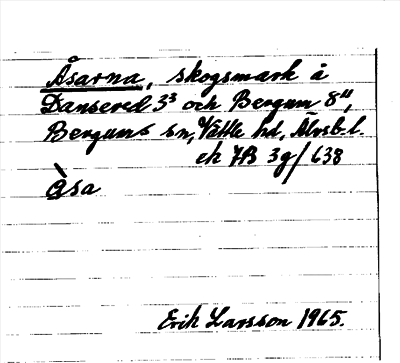 Åsarna, skogsmark å
Dansered 3³ och Bergum 8¹¹,
Bergums sn, Vättle hd, Älvsb. l.
ek 7B 3g/638
Åsa
Erik Larsson 1965.